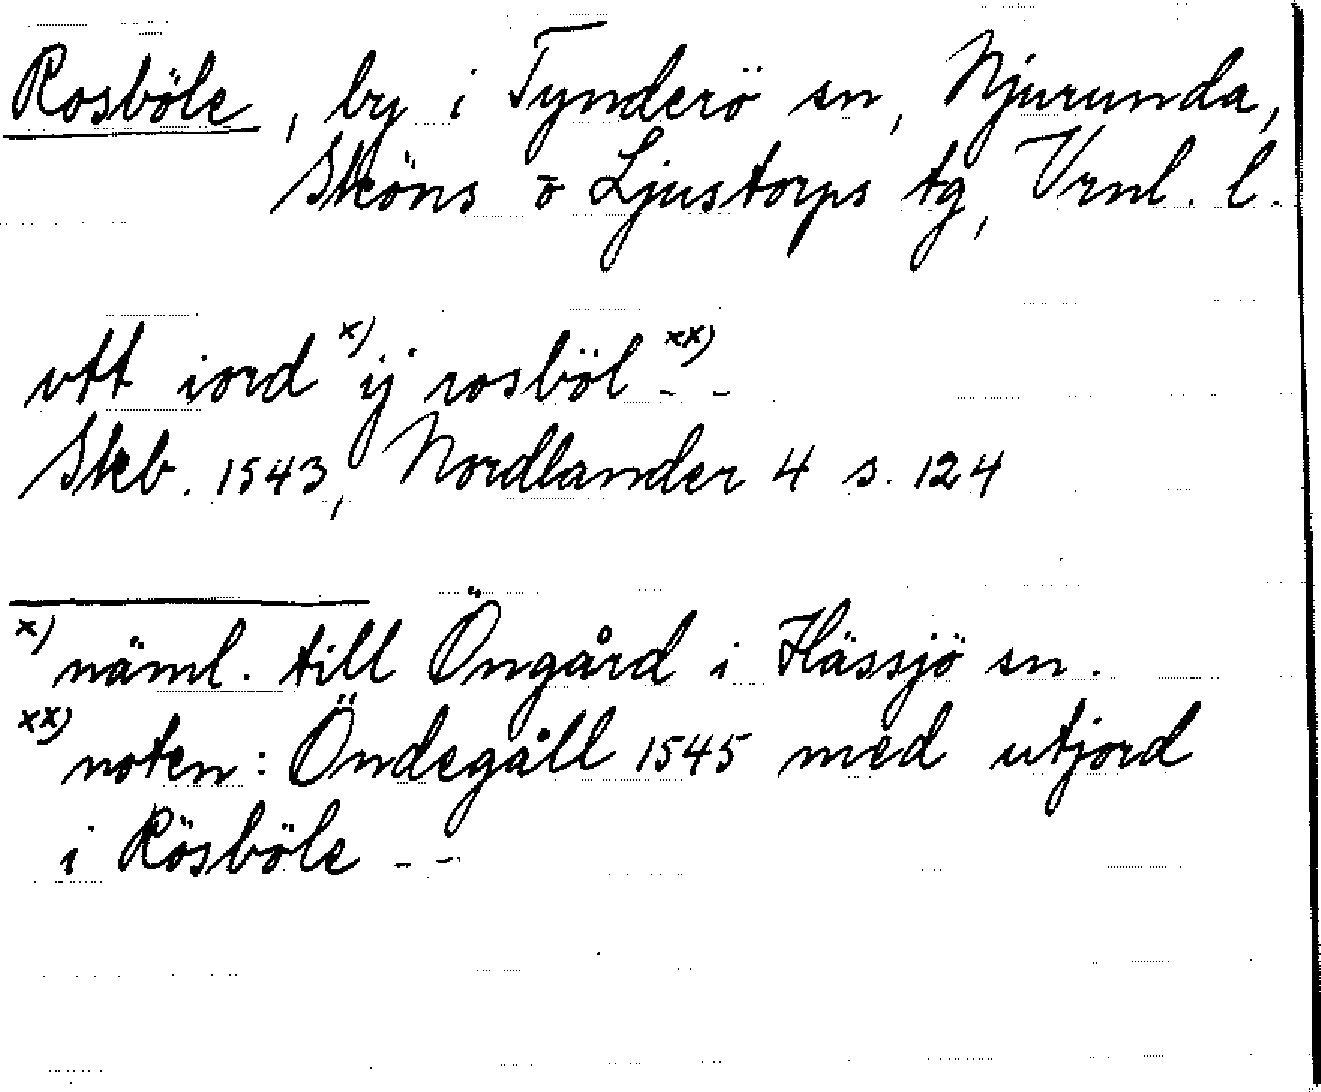 Rosböle, by i Tynderö sn, Njurunda,
Sköns o Ljustorps tg, Vrnl. l.
vtt iord x) ij rosböl xx) - -
Skb. 1543, Nordlander 4 s. 124
x) näml. till Öngård i Hässjö sn.
xx) noten: Öndegåll 1545 med utjord
i Rösböle - -